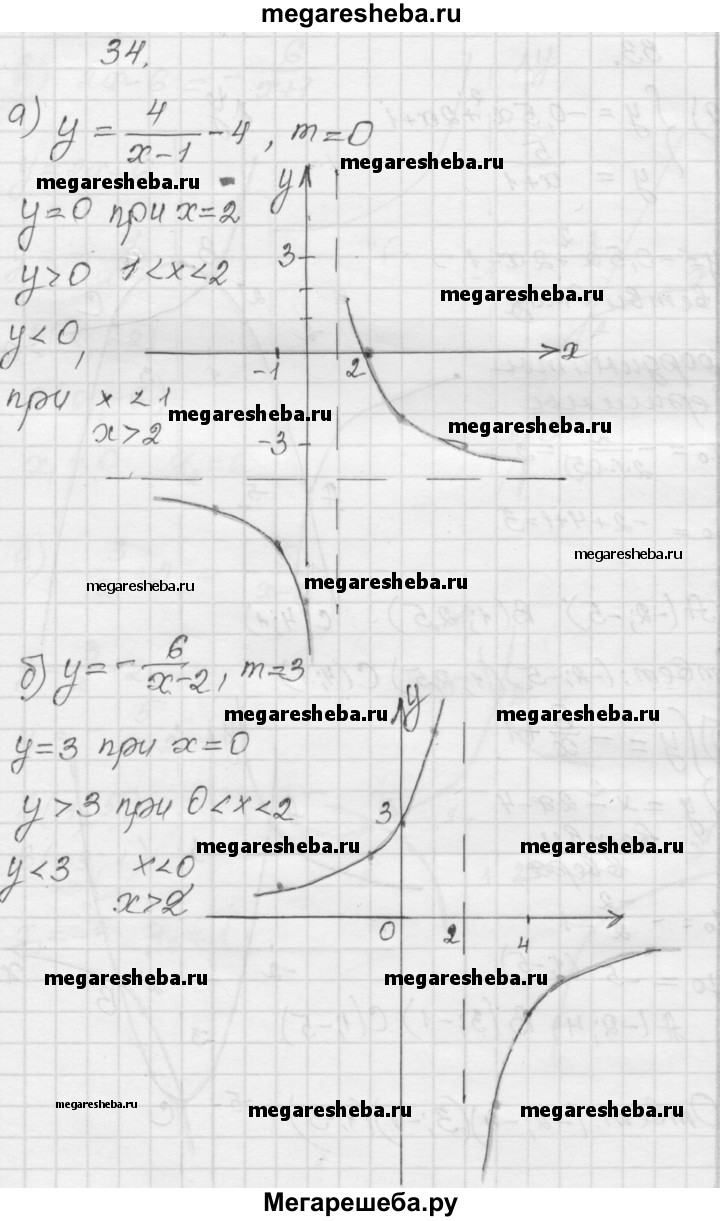 megaresheba.ru
34.
а) y = 4/(x-1) - 4, m=0
megaresheba.ru
megaresheba.ru
y
y=0 при x=2
3
y>0 1<x<2
megaresheba.ru
y<0,
-1 2 x
при x<1
megaresheba.ru
megaresheba.ru
x>2
-3
megaresheba.ru
megaresheba.ru
megaresheba.ru
б) y = - 6/(x-2), m=3
y
megaresheba.ru
megaresheba.ru
y=3 при x=0
y>3 при 0<x<2
3
megaresheba.ru
megaresheba.ru
y<3 x<0
x>2
0 2 4
megaresheba.ru
megaresheba.ru
megaresheba.ru
megaresheba.ru
megaresheba.ru
Мегарешеба.ру